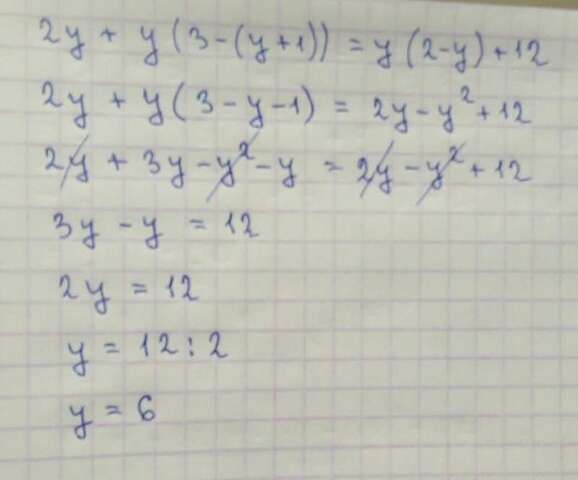 2y + y(3-(y+1)) = y(2-y)+12
2y + y(3-y-1) = 2y-y²+12
2y + 3y-y²-y = 2y-y²+12
3y-y = 12
2y = 12
y = 12:2
y = 6